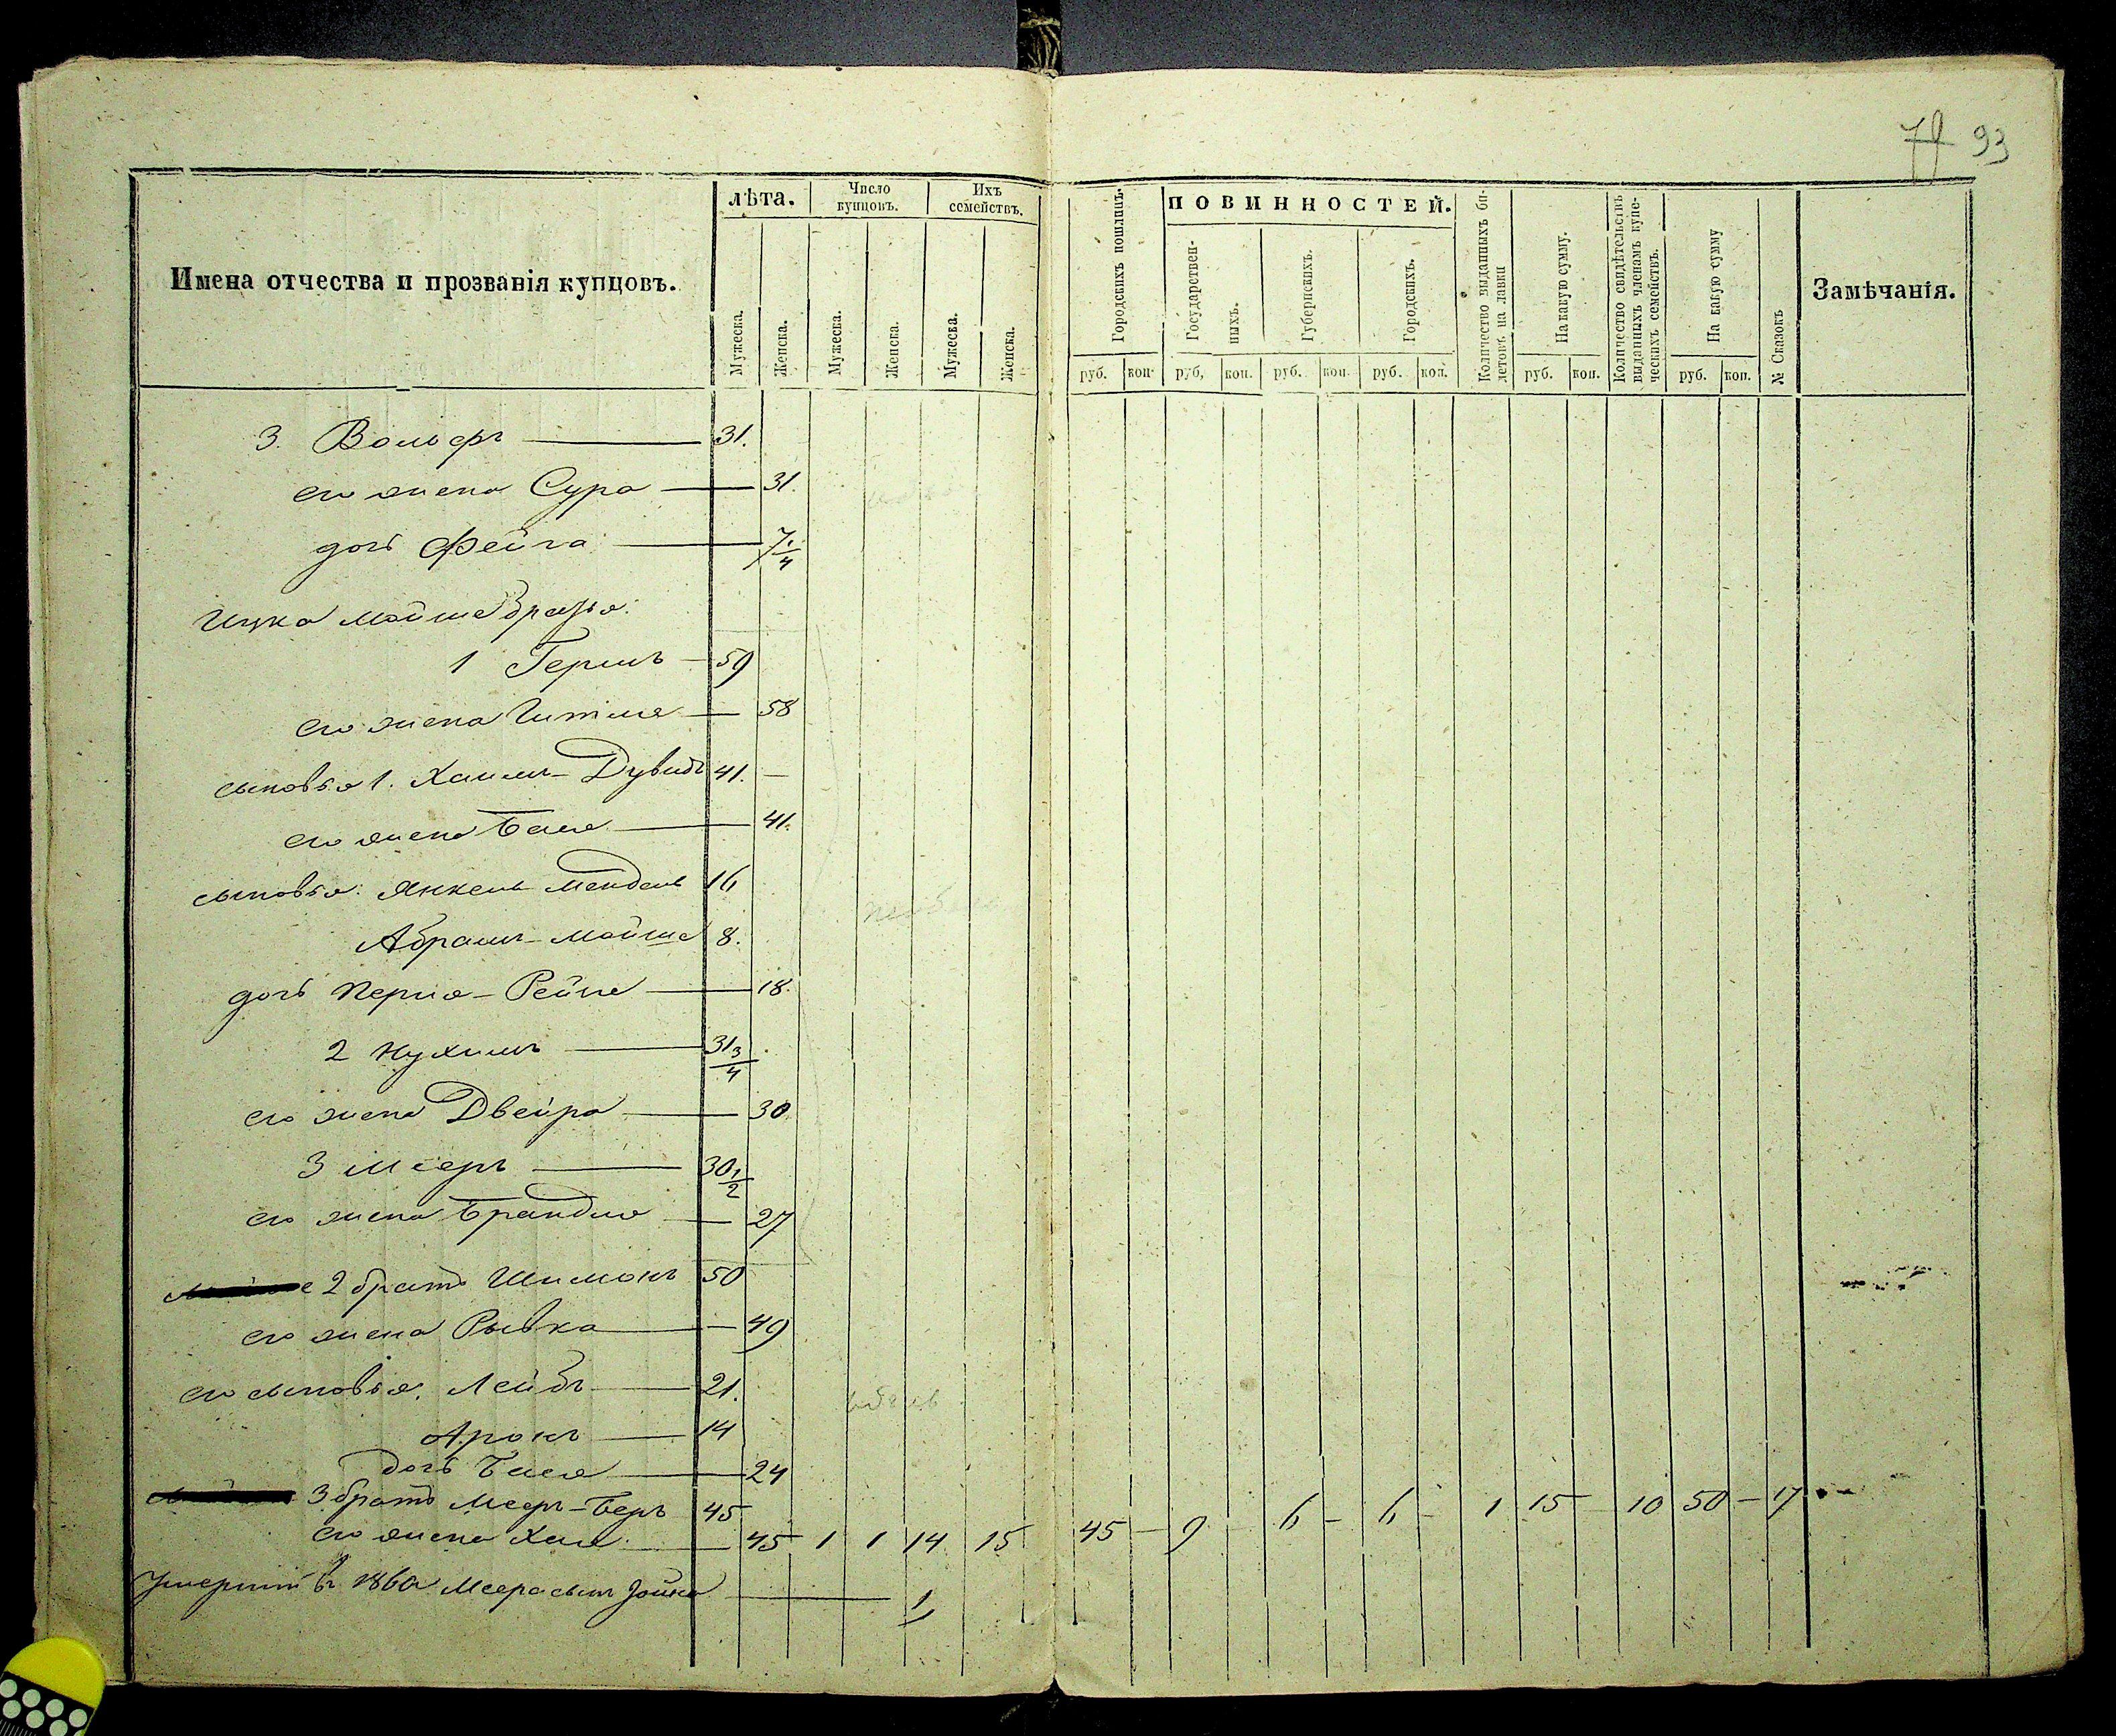 79 93
Имена отчества и прозванія купцовъ.
лѣта.
Число купцовъ.
Ихъ семействъ.
Мужеска.
Женска.
Мужеска.
Женска.
Мужеска.
Женска.
Городскихъ пошлинъ.
ПОВИННОСТЕЙ.
Государственныхъ.
Губернскихъ.
Городскихъ.
Количество выданныхъ билетовъ на лавки
На какую сумму.
Количество свидѣтельствъ выданныхъ членамъ купеческихъ семействъ.
На какую сумму
№ Сказокъ
Замѣчанія.
руб. коп. руб, коп. руб. коп. руб. коп. руб. коп. руб. коп.
3. Вольфъ — 31.
его жена Сура — 31.
дочь Фейга — 7 1/4
Ицка Мойше братья:
1 Гершъ — 59
его жена Гитля — 58
сыновья 1. Хаимъ-Дувидъ 41. —
его жена Бася — 41.
сыновья: Янкель Мендель 16
Абрамъ-Мойше 8.
дочь Перля-Рейзе — 18.
2 Нухимъ — 31 3/4
его жена Двейра — 30
3 Мееръ — 30 1/2
его жена Брандля — 27
2 братъ Шимонъ 50
его жена Рывка — 49
его сыновья: Лейбъ — 21.
Аронъ — 14
дочь Бася — 24
3 братъ Мееръ-Беръ 45
его жена Хая — 45 1 1 14 15 45 — 9 — 6 — 6 — 1 15 — 10 50 — 17
Умершій въ 1860 Меера сынъ — 1